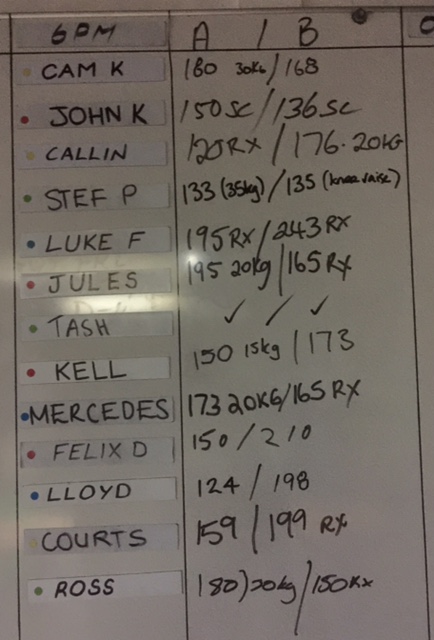 6PM A / B
CAM K 180 30KG/168
JOHN K 150 SC/136 SC
CALLIN 120 RX / 176. 20KG
STEF P 133 (35kg) / 135 (knee raise)
LUKE F 195 RX / 243 RX
JULES 195 20kg / 165 RX
TASH ✓ / ✓
KELL 150 15kg / 173
MERCEDES 173 20KG/165 RX
FELIX D 150 / 210
LLOYD 124 / 198
COURTS 159 / 199 RX
ROSS 180) 20kg / 150 RX